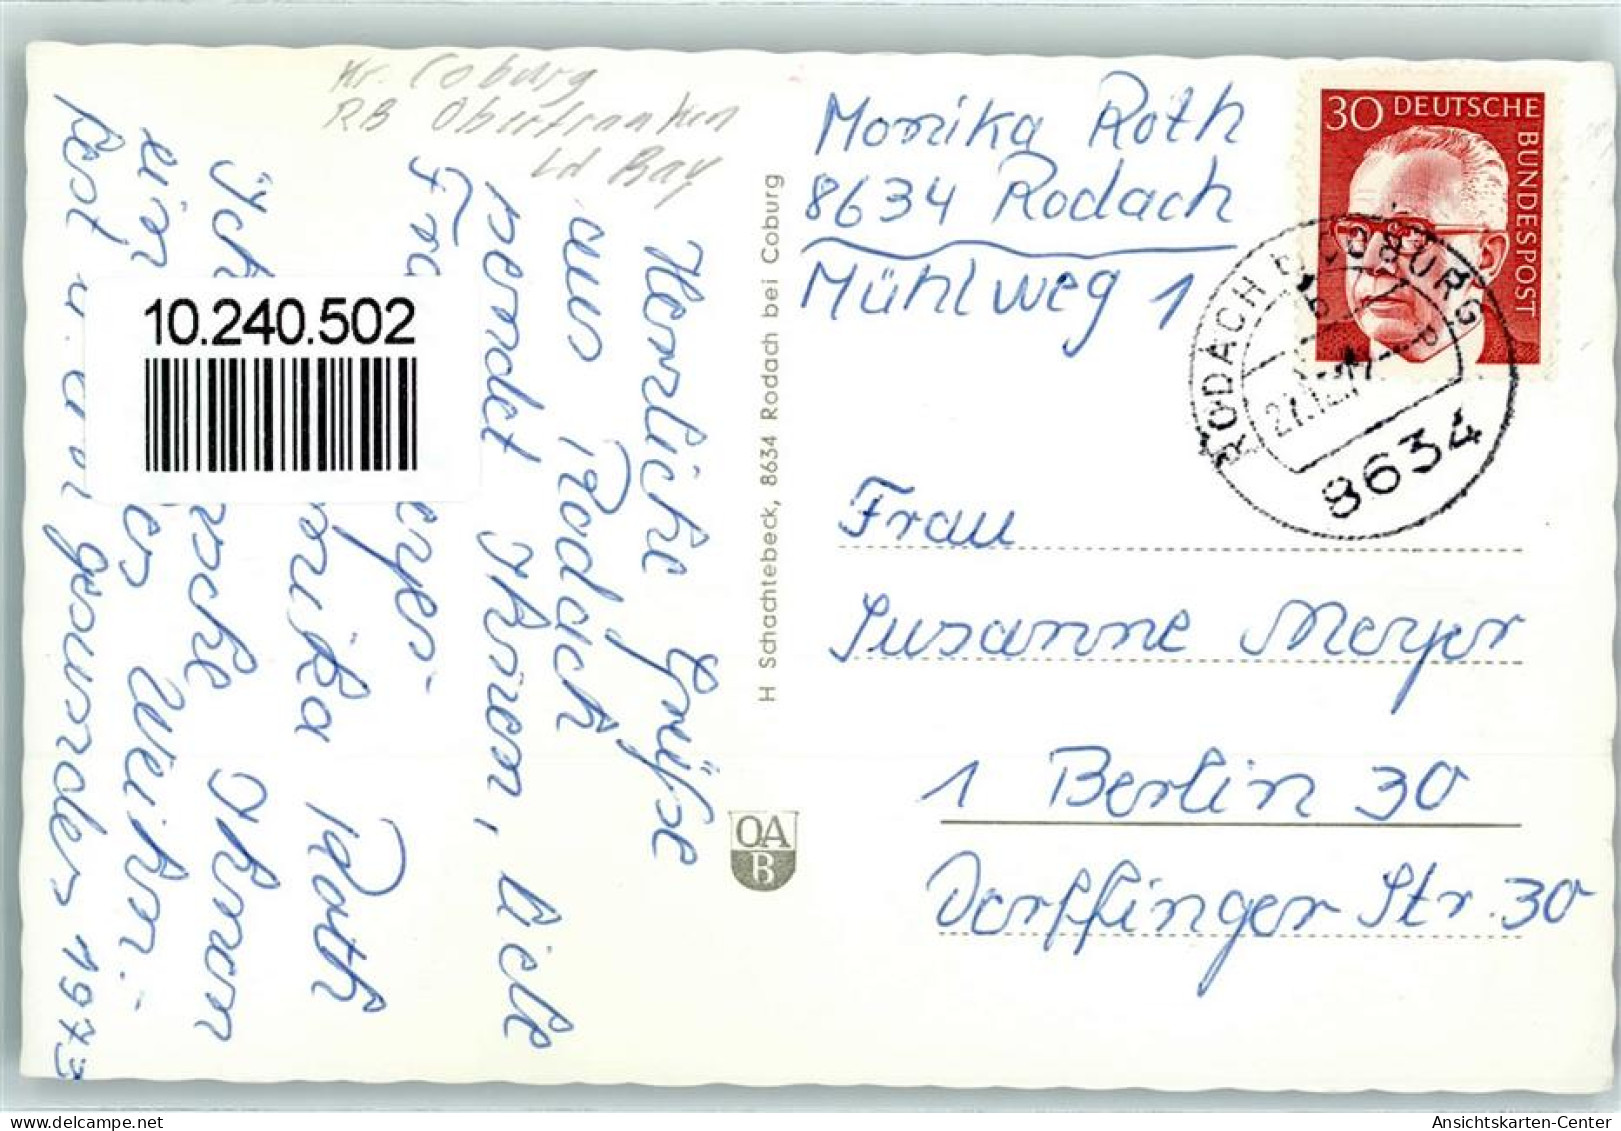 Kr. Coburg
RB Oberfranken
Ld Bay
Herzliche Grüße
aus Rodach
sendet Ihnen, liebe
Fra
Monika Roth
Ich wünsche Ihnen
ein Weihn.-
fest u. ein gesundes 1973
10.240.502
H Schachtebeck, 8634 Rodach bei Coburg
OAB
Monika Roth
8634 Rodach
Mühlweg 1
30 DEUTSCHE
BUNDESPOST
RODACH B COBURG
8634
Frau
Susanne Meyer
1 Berlin 30
Dorffinger Str. 30
Ansichtskarten-Center